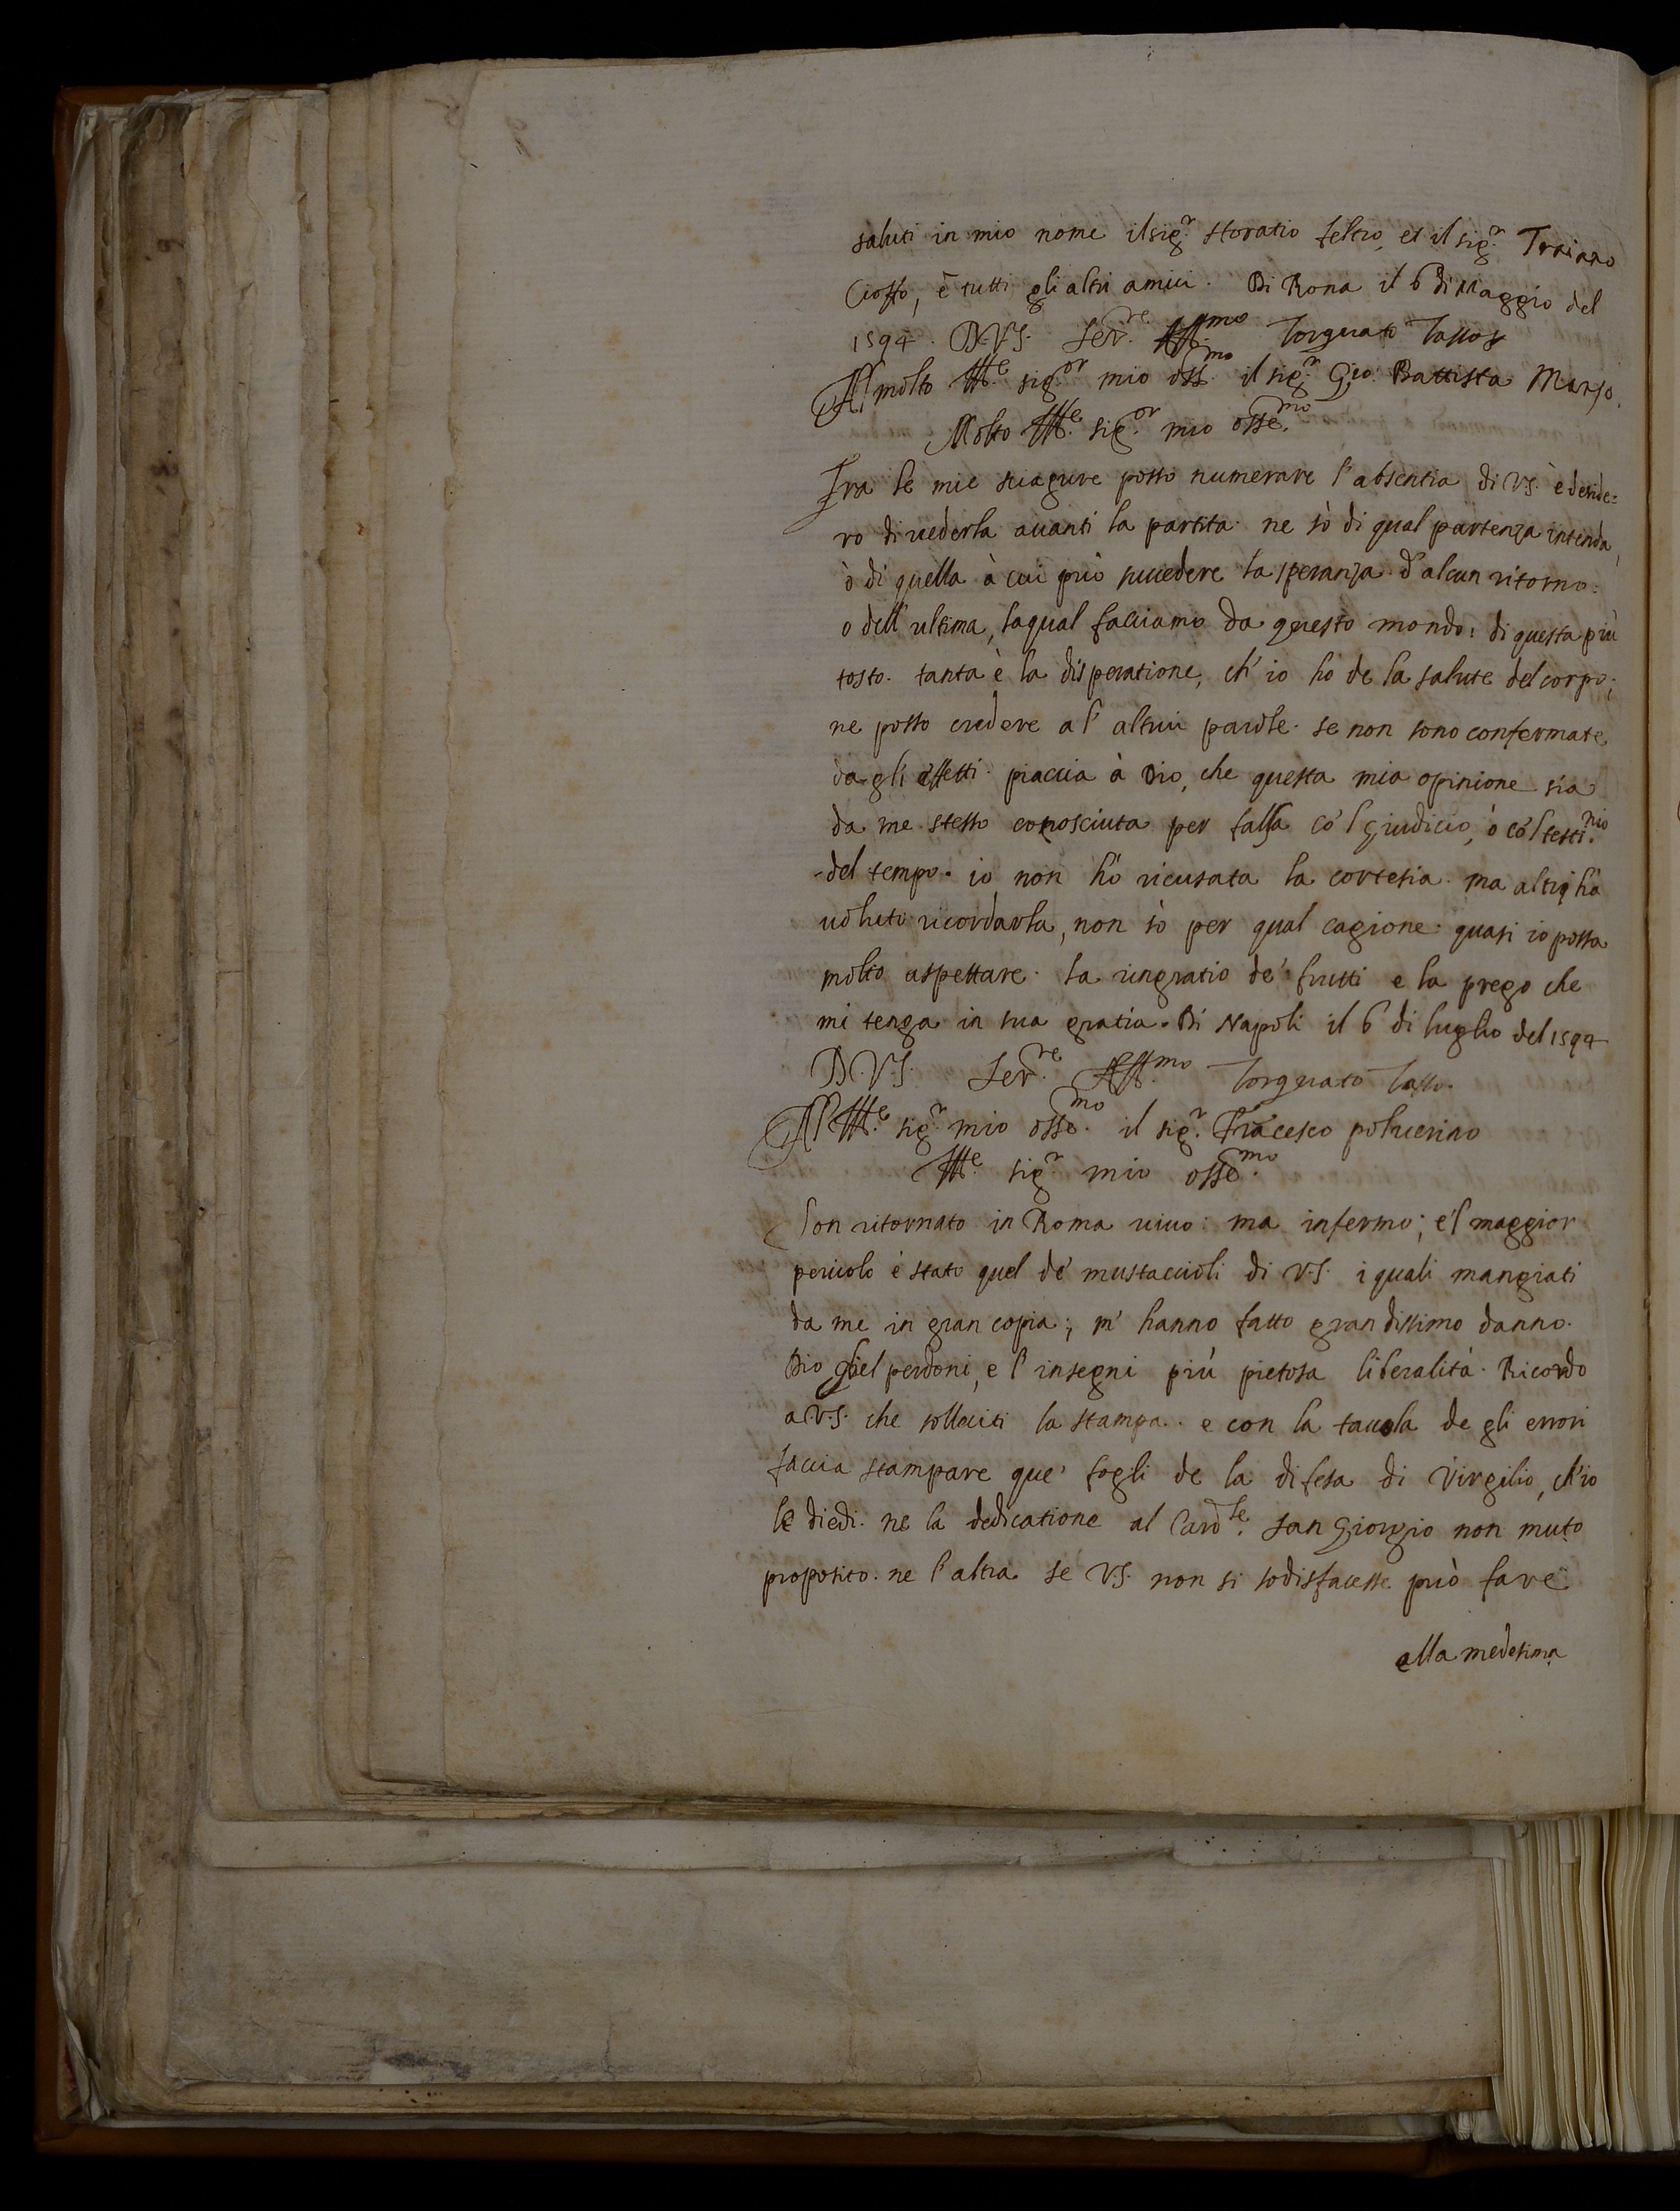 saluti in mio nome il sig.r Horatio feltro, et il sig.r Traiano
Cioffo, è tutti gli altri amici. Di Roma il 6 di Maggio del
1594. D.V.S. Ser.re Aff.mo Torquato Tasso
Al molto Ill.e sig.or mio oss.mo il sig.r Gio: Battista Manso.
Molto Ill.e sig.or mio osse.mo
Fra le mie sciagure posso numerare l'absentia di V.S. è deside=
ro di uederla auanti la partita. ne sò di qual partenza intenda,
ò di quella à cui può succedere la speranza d'alcun ritorno:
o dell'ultima, laqual facciamo da questo mondo: di questa più
tosto. tanta è la disperatione, ch'io ho de la salute del corpo;
ne posso credere a l'altrui parole. se non sono confermate
da gli effetti. piaccia à Dio, che questa mia opinione sia
da me stesso conosciuta per falsa co'l giudicio, ò co'l testi.nio
del tempo. io non hò ricusata la cortesia. ma altri hà
uoluto ricordarla, non sò per qual cagione. quasi io possa
molto aspettare. la ringratio de' frutti e la prego che
mi tenga in sua gratia. Di Napoli il 6 di luglio del 1594
D.V.S. Ser.re Aff.mo Torquato Tasso.
Al Ill.e sig.r mio osse.mo il sig.r Fracesco poluerino
Ill.e sig.r mio osse.mo
Son ritornato in Roma uiuo: ma infermo; e'l maggior
pericolo è stato quel de' mustaccioli di V.S. i quali mangiati
da me in gran copia; m'hanno fatto grandissimo danno.
Dio gliel perdoni, e l'insegni più pietosa liberalità. Ricordo
a V.S. che solleciti la stampa. e con la tauola de gli errori
faccia stampare que' fogli de la difesa di Virgilio, ch'io
le diedi. ne la dedicatione al Card.le san Giorgio non muto
proposito. ne l'altra se V.S. non si sodisfacesse può fare
alla medesima